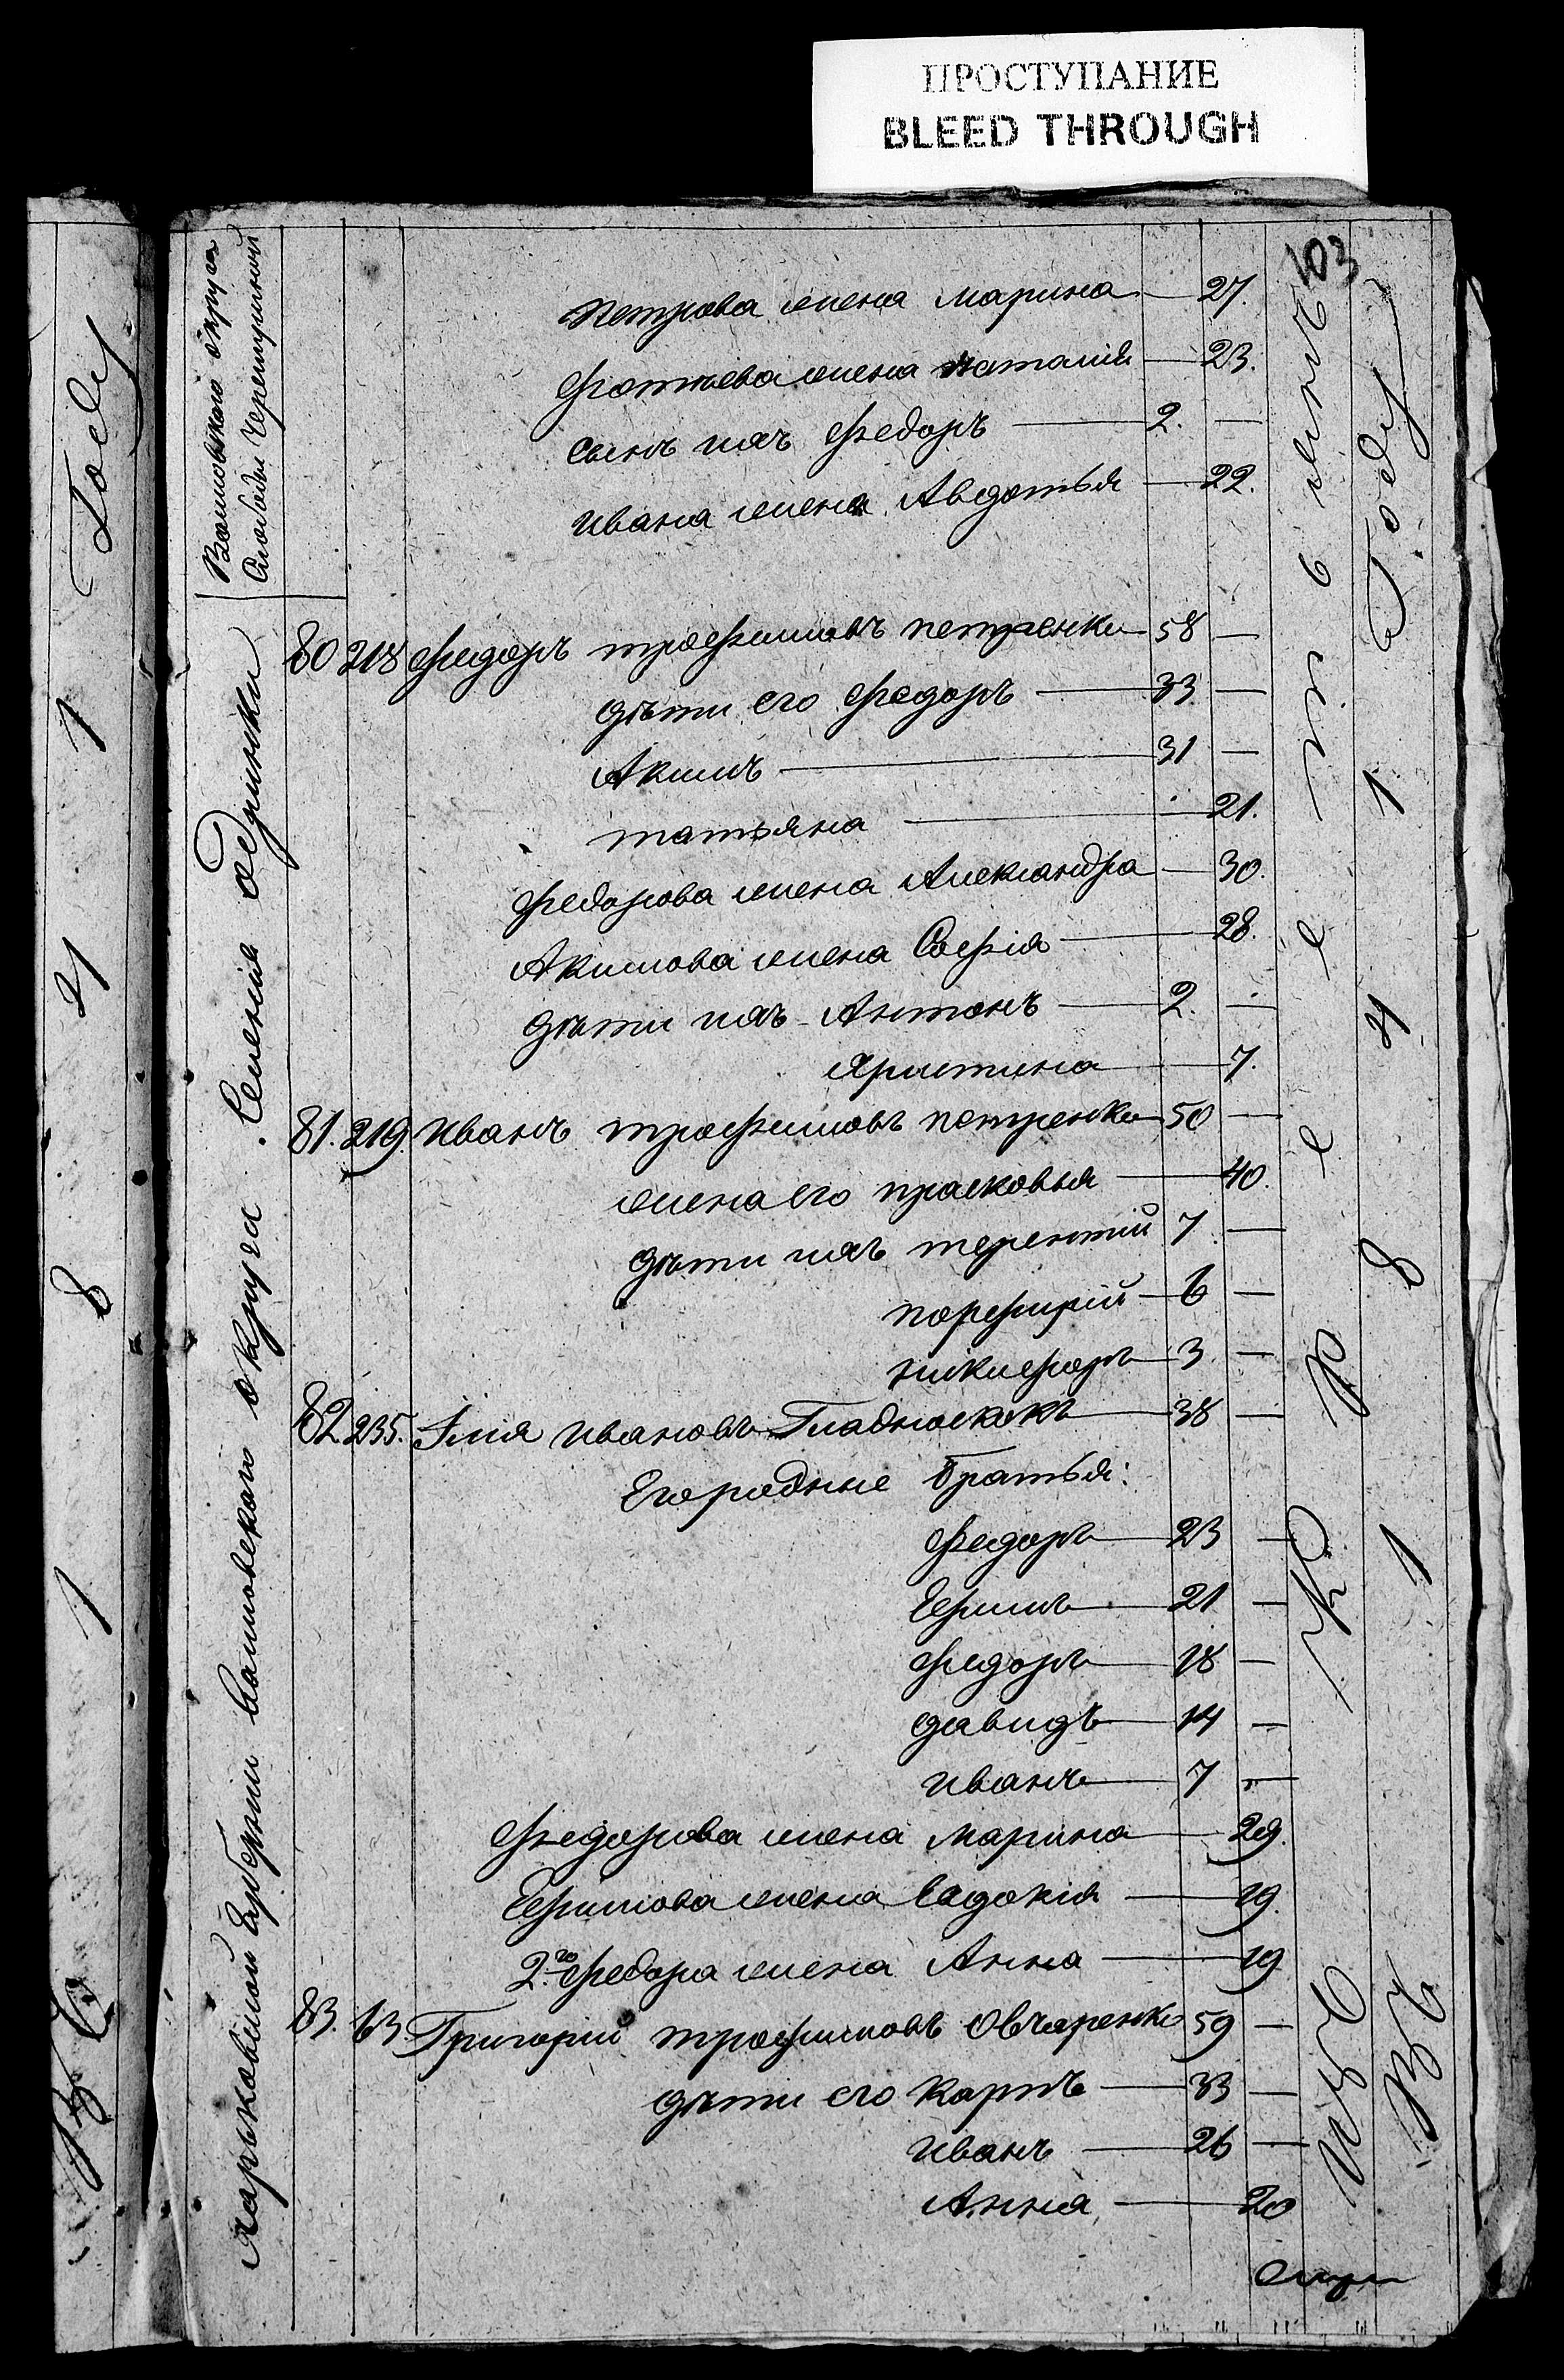 ПРОСТУПАНИЕ
BLEED THROUGH
103
Петрова жена Марина 27.
Фотиева жена Наталия 23.
сынъ ихъ Федоръ 2. —
Ивана жена Авдотья 22.
80 218 Федоръ Трофимовъ Петренко 58 —
дѣти его Федоръ 33 —
Акимъ 31 —
Татьяна 21.
Федорова жена Александра 30.
Акимова жена Софія 28.
дѣти ихъ Антонъ 2. —
Христина 7.
81. 219. Иванъ Трофимовъ Петренко 50 —
жена его Прасковья 40.
дѣти ихъ Терентій 7 —
Порфирій 6 —
Никифоръ 3 —
82 235. Илія Ивановъ Гладкоскокъ 38 —
Его родные братья:
Федоръ 23 —
Ефимъ 21 —
Федоръ 18 —
Давидъ 14 —
Иванъ 7 —
Федорова жена Марина 29.
Ефимова жена Евдокія 19.
2го Федора жена Анна 19
83. 63 Григорій Трофимовъ Овчаренко 59 —
дѣти его Карпъ 33 —
Иванъ 26 —
Анна 20
Харьковской Губерніи Волковскаго округа Селенія Одринки
Волковскаго округа
Слободы Черемушной
Изъ Крестьянъ
Въ 1841 Году
1841 Году